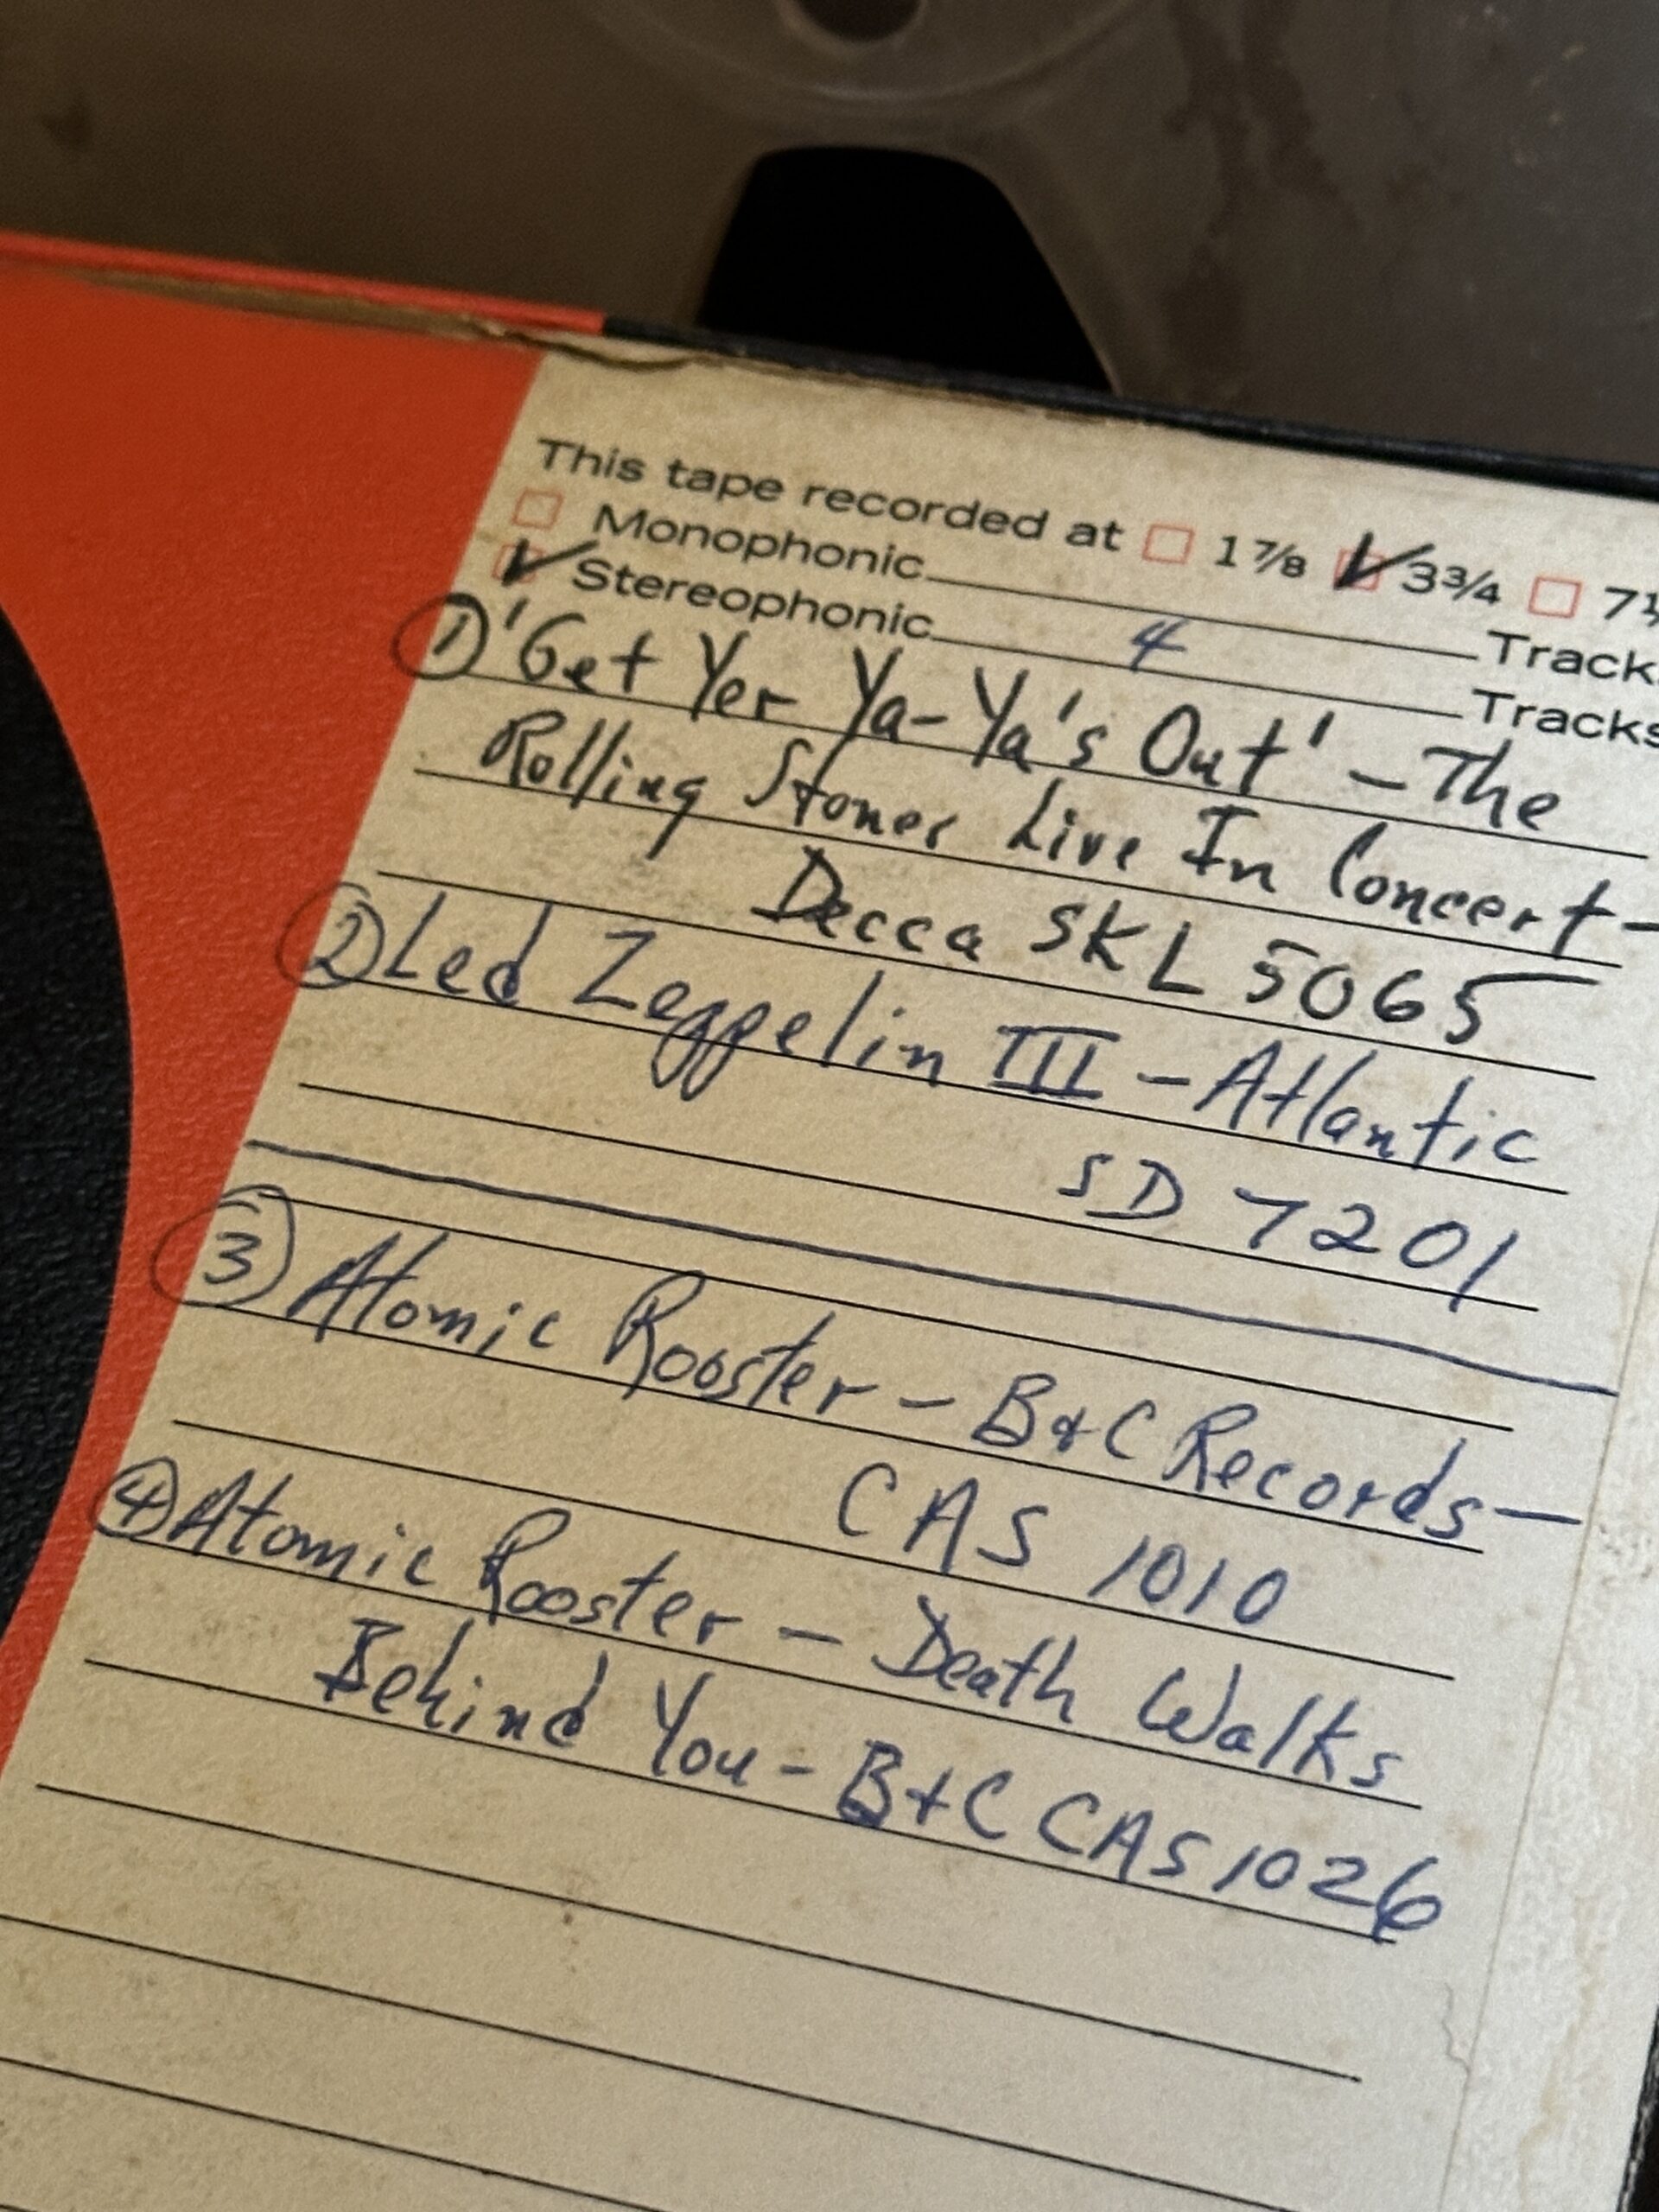 This tape recorded at 1 7/8 3 3/4
Monophonic
Stereophonic 4 Tracks
① 'Get Yer Ya-Ya's Out' - The
Rolling Stones Live In Concert -
Decca SKL 5065
② Led Zeppelin III - Atlantic
SD 7201
③ Atomic Rooster - B&C Records -
CAS 1010
④ Atomic Rooster - Death Walks
Behind You - B+C CAS 1026